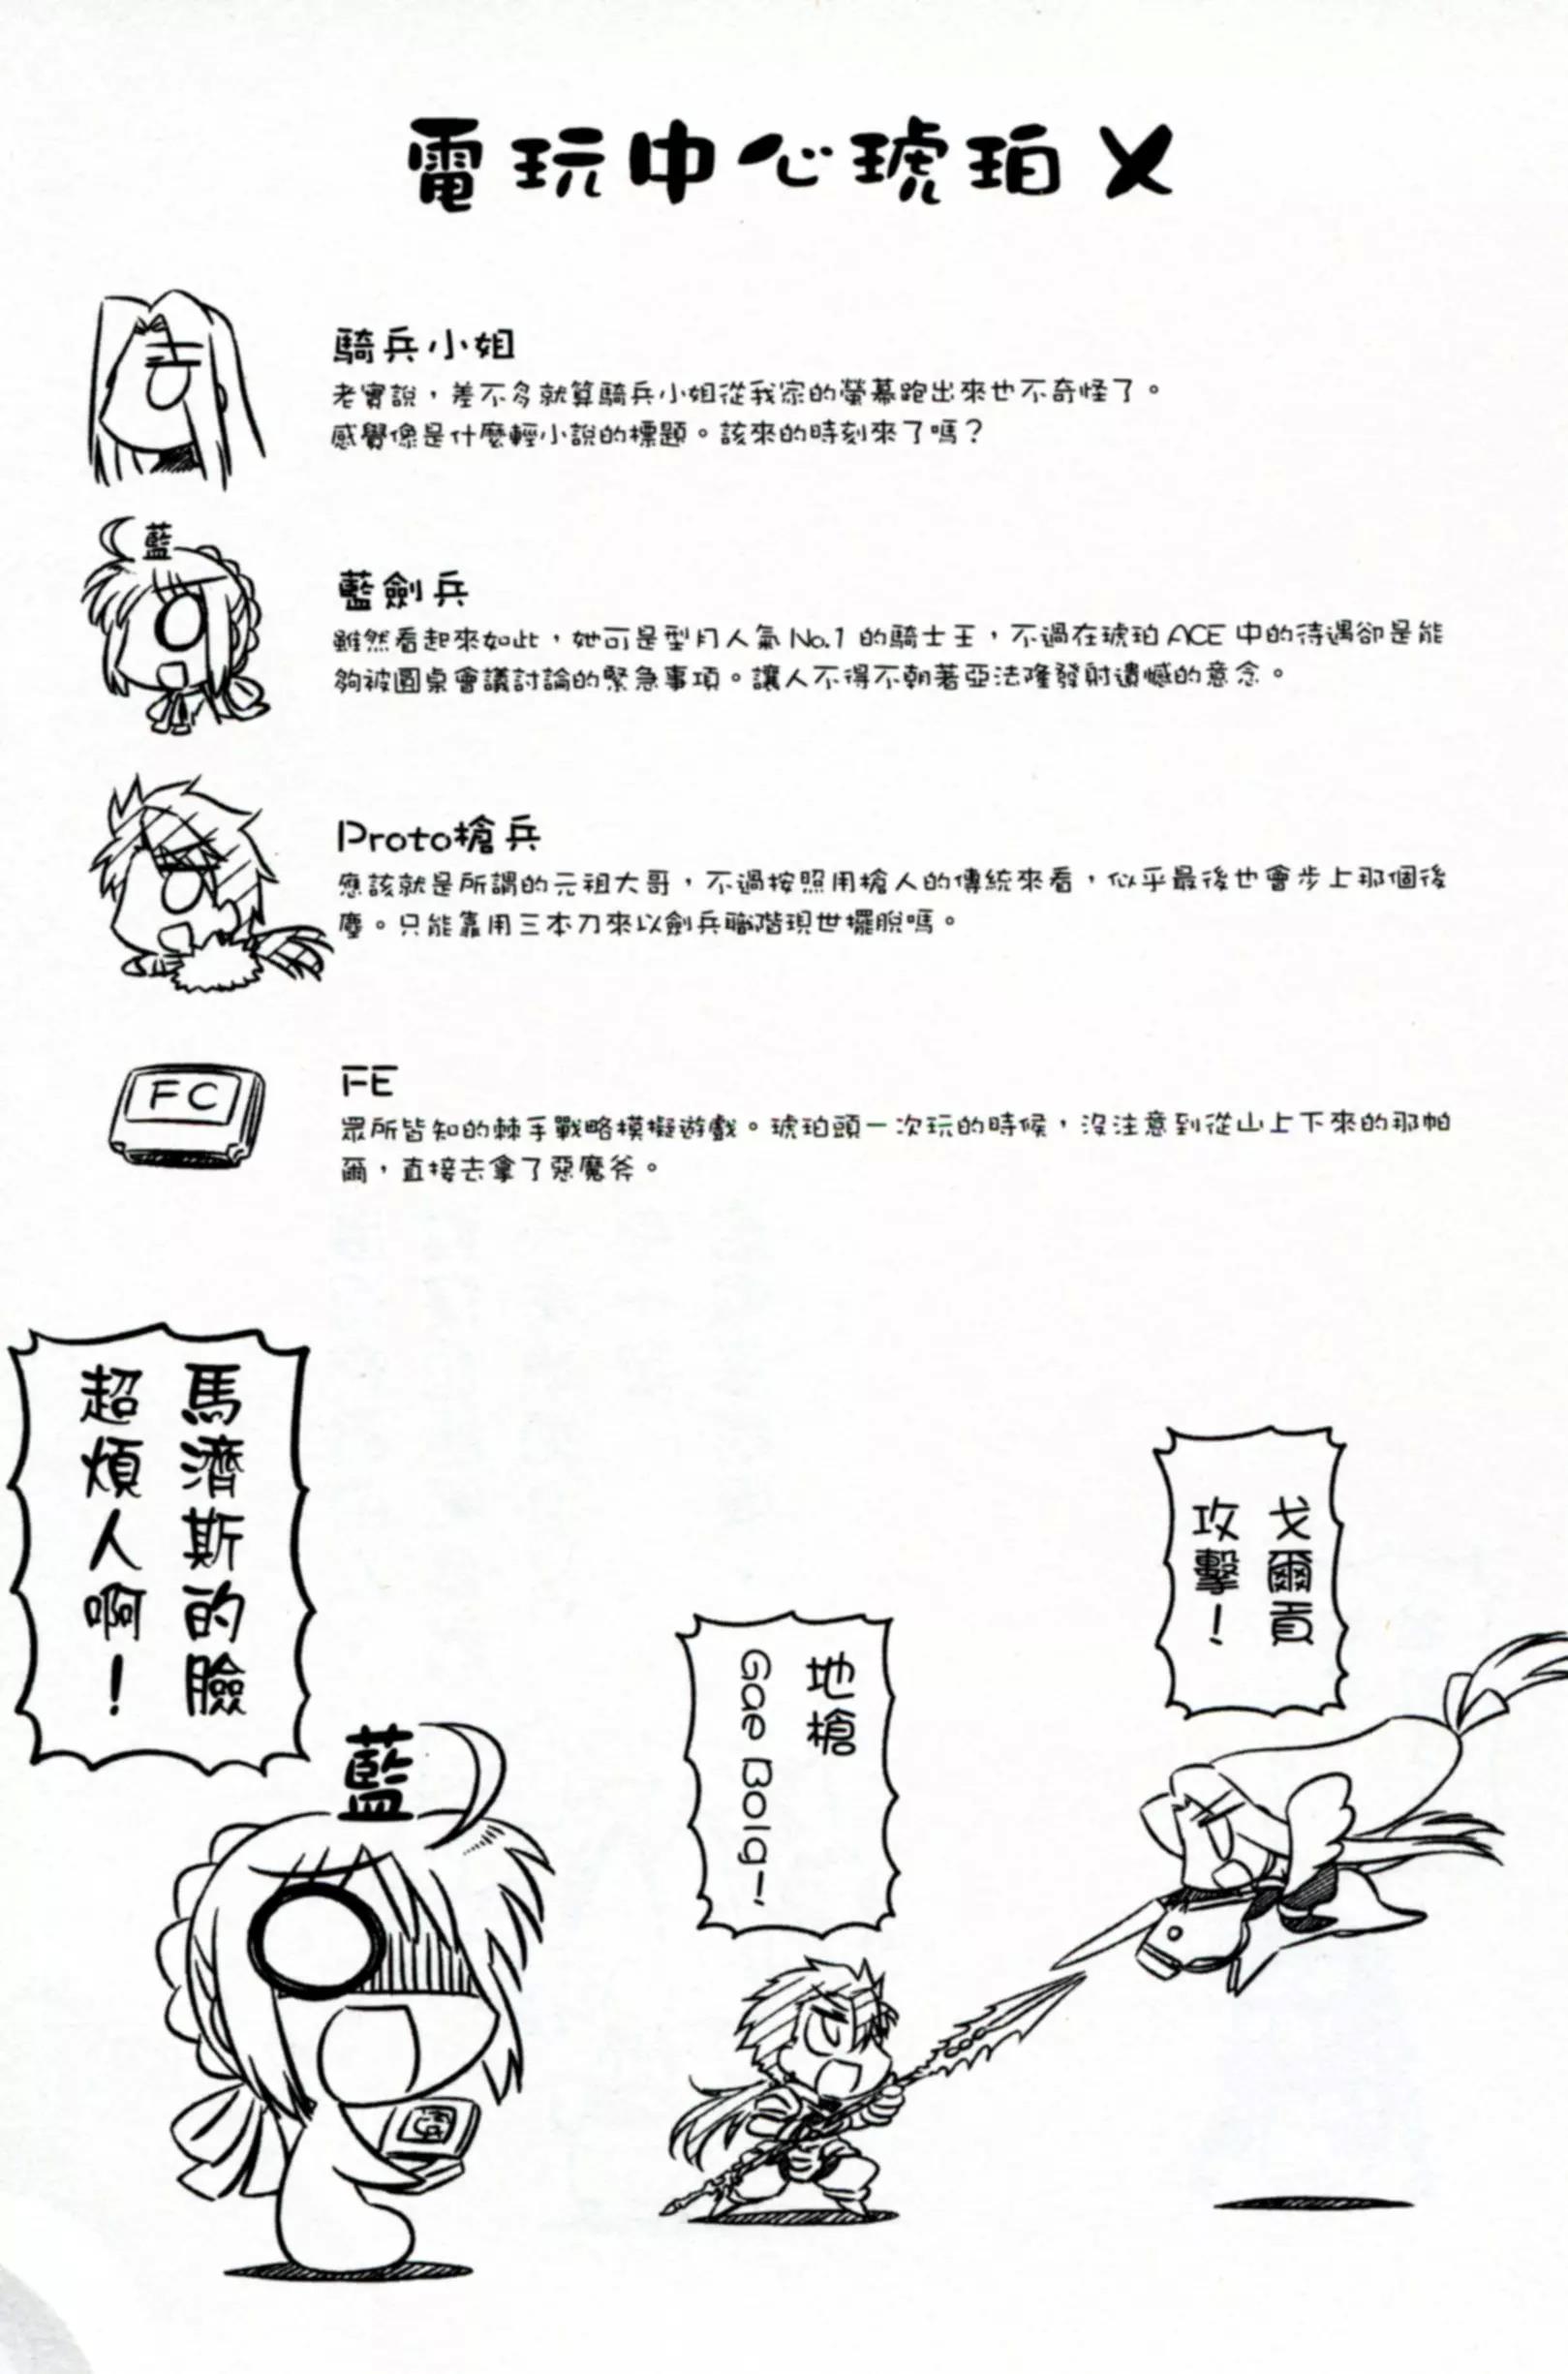 電玩中心琥珀X
騎兵小姐
老實說，差不多就算騎兵小姐從我家的螢幕跑出來也不奇怪了。
感覺像是什麼輕小說的標題。該來的時刻來了嗎？
藍
藍劍兵
雖然看起來如此，她可是型月人氣No.1的騎士王，不過在琥珀ACE中的待遇卻是能
夠被圓桌會議討論的緊急事項。讓人不得不朝著亞法隆發射遺憾的意念。
Proto槍兵
應該就是所謂的元祖大哥，不過按照用槍人的傳統來看，似乎最後也會步上那個後
塵。只能靠用三本刀來以劍兵職階現世擺脫嗎。
FC
FE
眾所皆知的棘手戰略模擬遊戲。琥珀頭一次玩的時候，沒注意到從山上下來的那帕
爾，直接去拿了惡魔斧。
戈爾貢
攻擊！
地槍
Gae Bolg—！
馬濟斯的臉
超煩人啊！
藍